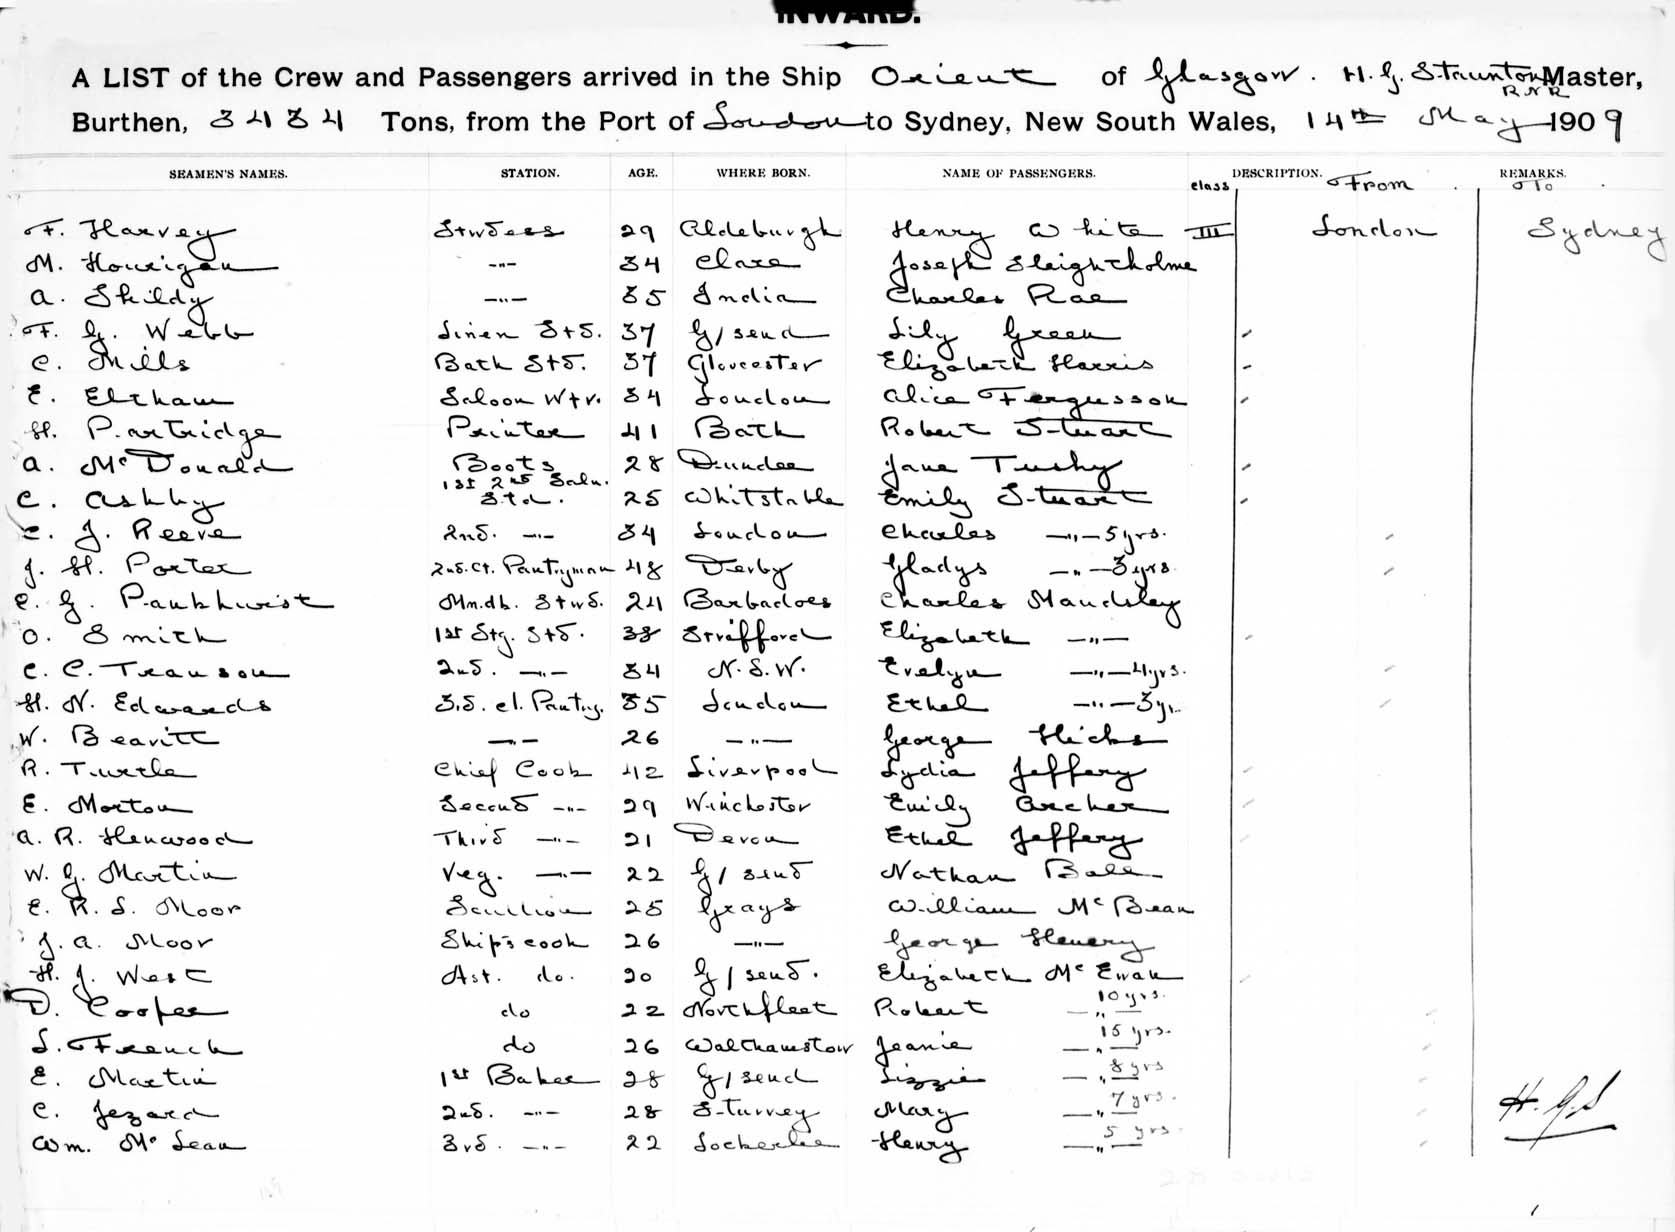 INWARD.
A LIST of the Crew and Passengers arrived in the Ship Orient of Glasgow. H. G. Staunton Master,
R N R
Burthen, 3434 Tons, from the Port of London to Sydney, New South Wales, 14th May 1909
SEAMEN'S NAMES. STATION. AGE. WHERE BORN. NAME OF PASSENGERS. DESCRIPTION. REMARKS.
class From To
F. Harvey Stwdess 29 Aldeburgh Henry White III London Sydney
M. Hourigan —"— 34 Clare Joseph Sleightholme
A. Skildy —"— 35 India Charles Rae
F. G. Webb Linen Std. 37 G/send Lily Green
C. Mills Bath Std. 37 Gloucester Elizabeth Harris
E. Eltham Saloon Wtr. 34 London Alice Fergusson
H. Partridge Printer 41 Bath Robert Stuart
A. McDonald Boots 28 Dundee Jane Tushy
1st 2nd Saln.
C. Ashby Std. 25 Whitstable Emily Stuart
C. J. Reeve 2nd. —"— 34 London Charles —"— 5 yrs.
J. H. Porter 2nd. Cl. Pantryman 48 Derby Gladys —"— 3 yrs.
C. G. Pankhurst Mn. dk. Stwd. 24 Barbadoes Charles Maudsley
O. Smith 1st Stg. Std. 38 Strafford Elizabeth —"—
C. C. Transon 2nd. —"— 34 N.S.W. Evelyn —"— 4 yrs.
H. N. Edwards 3.d. cl. Pantry. 35 London Ethel —"— 3 yr.
W. Beavitt —"— 26 —"— George Hicks
R. Turtle Chief Cook 42 Liverpool Lydia Jeffery
E. Morton Second —"— 29 Winchester Emily Archer
A. R. Henwood Third —"— 21 Devon Ethel Jeffery
W. G. Martin Veg. —"— 22 G/send Nathan Ball
E. R. S. Moor Scullion 25 Grays William McBean
J. A. Moor Ship's cook 26 —"— George Henery
H. J. West Ast. do. 20 G/send. Elizabeth McEwan
D. Cooper do 22 Northfleet Robert —"— 10 yrs.
L. French do 26 Walthamstow Jeanie —"— 15 yrs.
E. Martin 1st Baker 28 G/send Lizzie —"— 8 yrs
C. Jezard 2nd. —"— 28 Sturrey Mary —"— 7 yrs. H. G. S
Wm. McLean 3rd. —"— 22 Lockerbie Henry —"— 5 yrs.